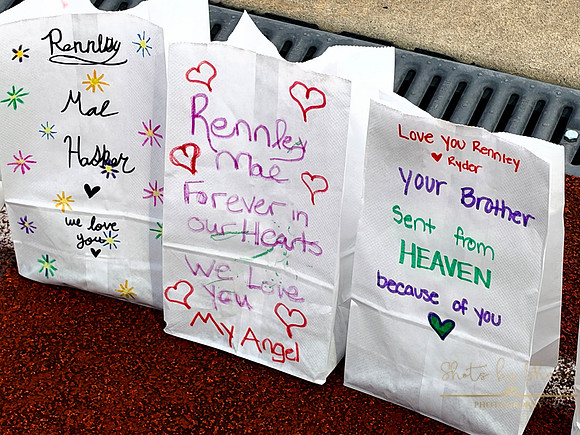 Rennley
Mae
Hasper
we love
you
Rennley
Mae
Forever in
our Hearts
We Love
You
My Angel
Love You Rennley
Ryder
Your Brother
Sent from
HEAVEN
because of you
Shots